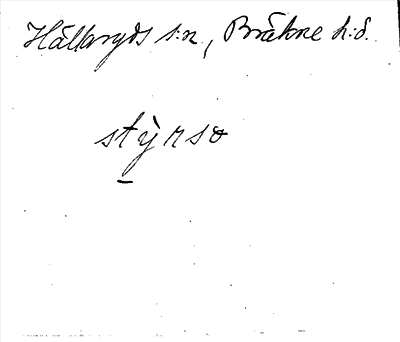 Hällaryds s:n, Bräkne h:d.
stỳrsə